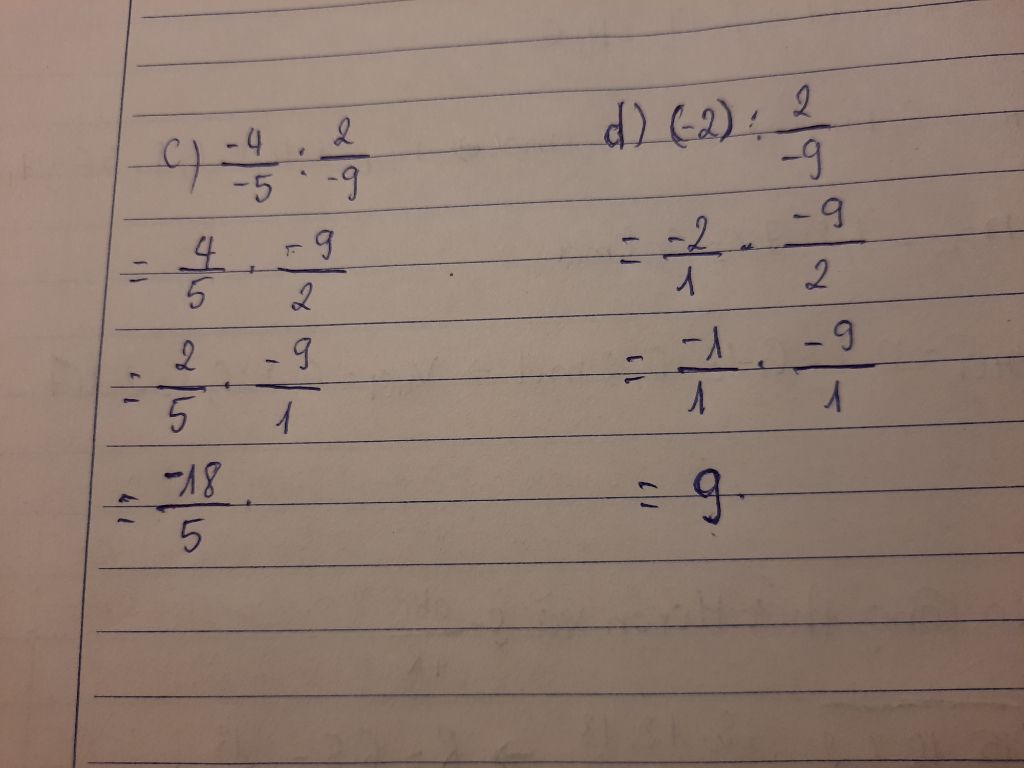 c) -4/-5 : 2/-9
= 4/5 . -9/2
= 2/5 . -9/1
= -18/5 .
d) (-2) : 2/-9
= -2/1 . -9/2
= -1/1 . -9/1
= 9.